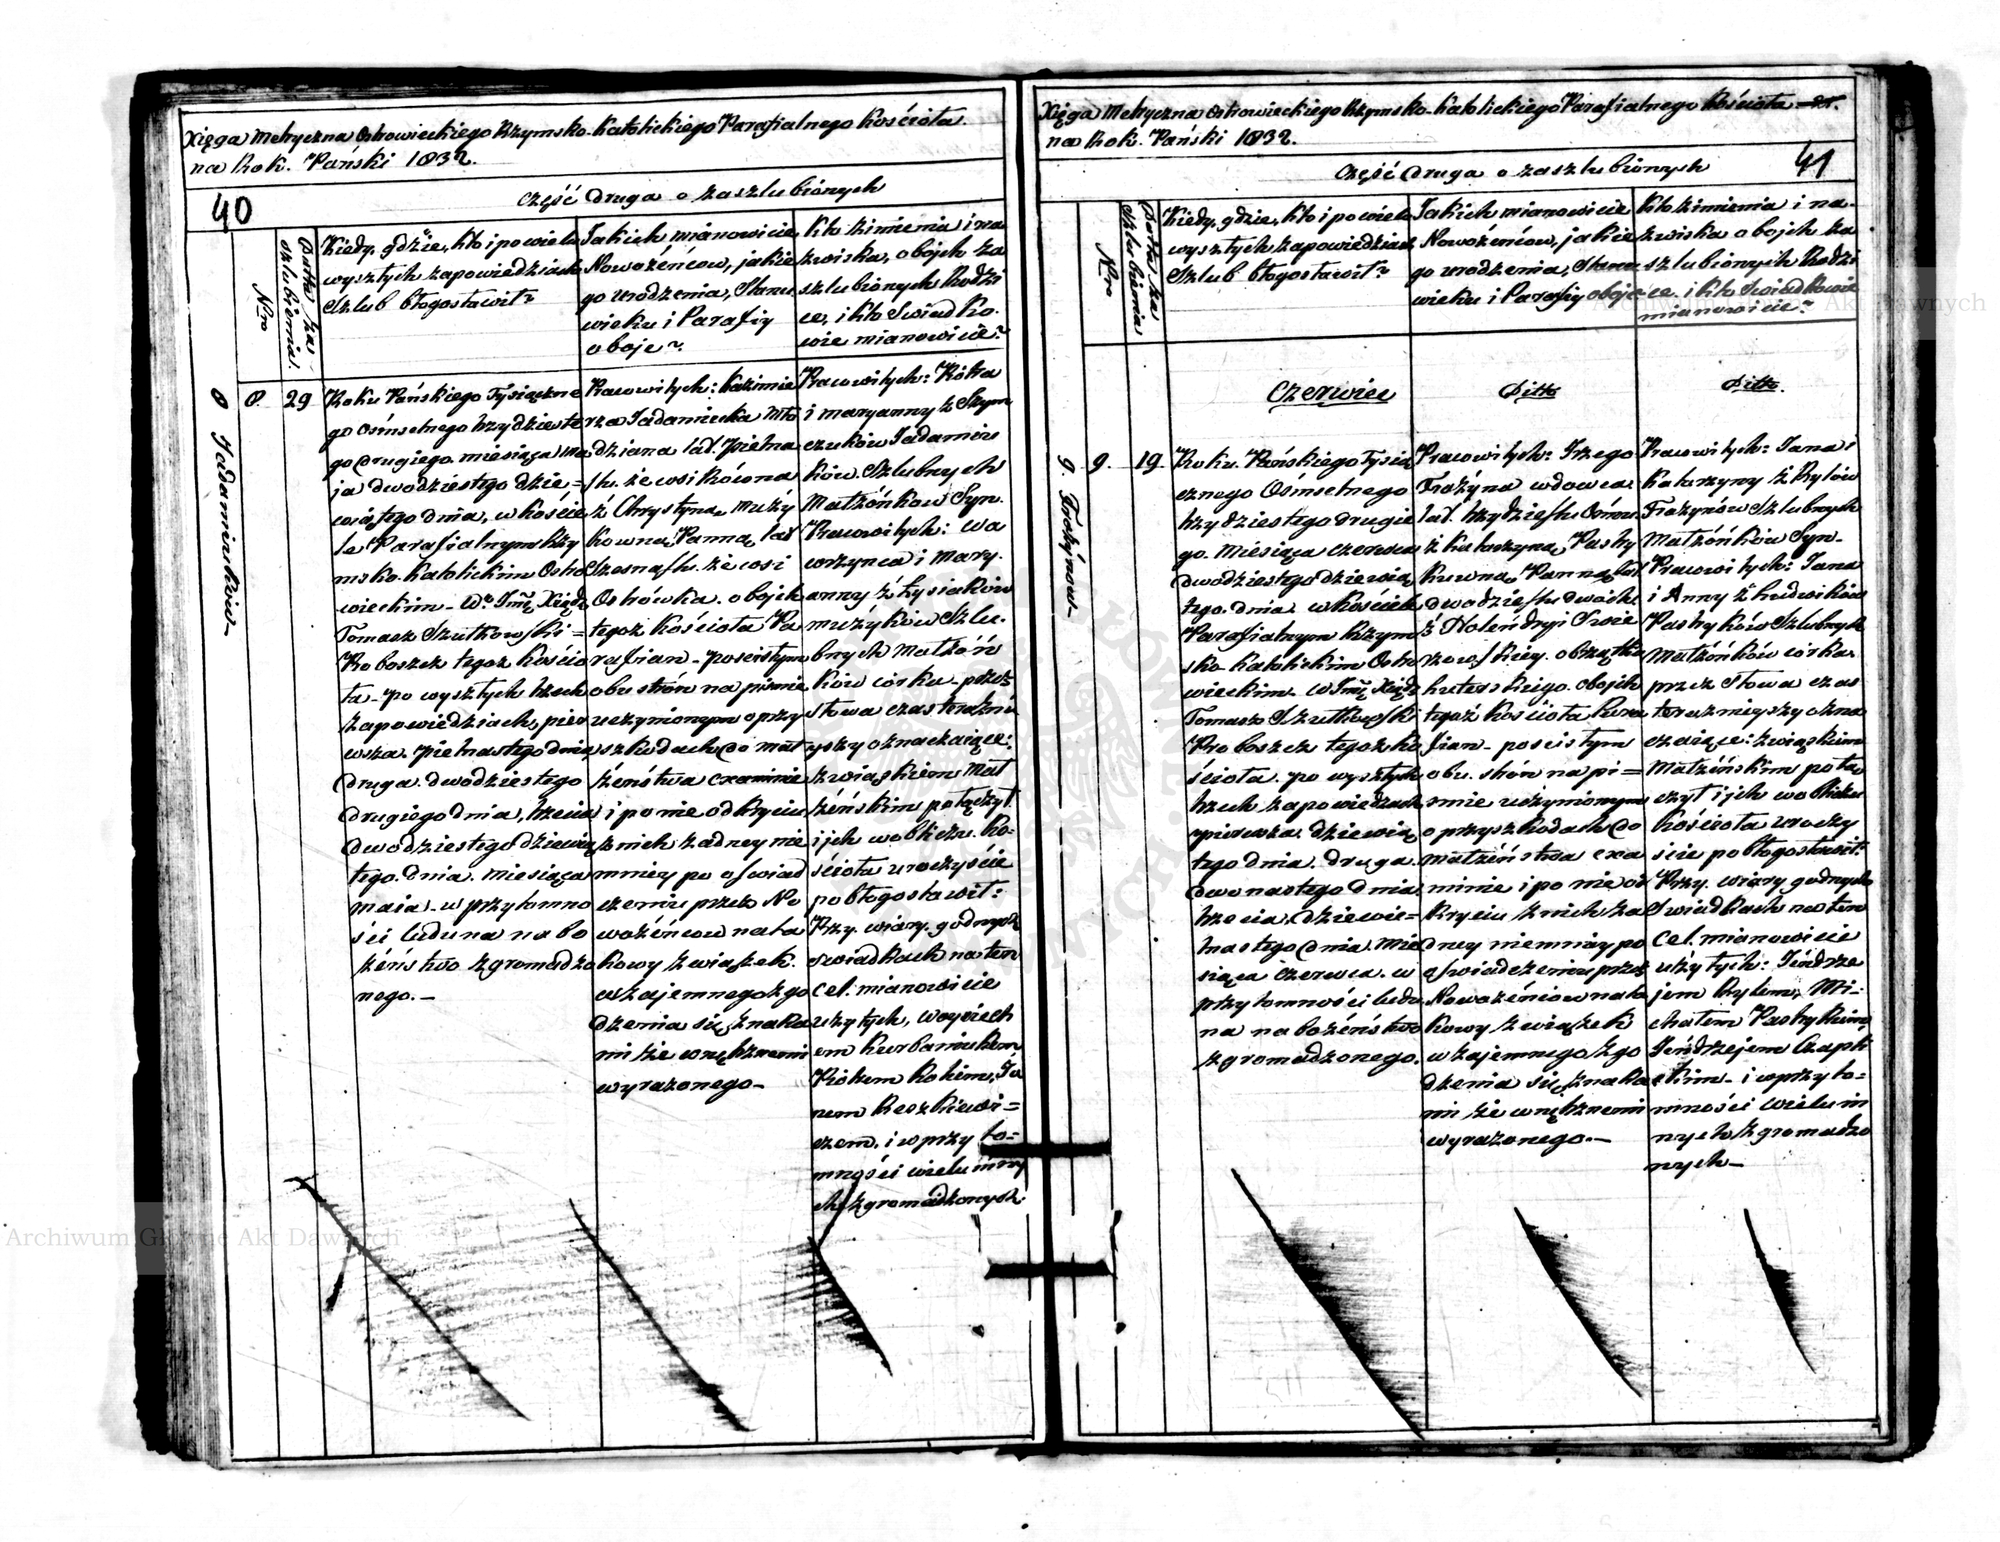 Xięga Metryczna Ostrowieckiego Rzymsko-Katolickiego Parafialnego Kościoła
na Rok Pański 1832.
40
Część druga o zaszlubionych
Nro
Datta zaszlubienia
Kiedy, gdzie, kto i po wielu
wyszłych zapowiedziach
Szlub błogosławił?
Jakich mianowicie
Nowożeńcow, jakie
go urodzenia, Stanu
wieku i Parafiy
oboje?
Kto z imienia i na
zwiska, obojch za
szlubionych Rodzi
ce, i kto Swiadko-
wie mianowicie?
8 Jadamiuków
8. 29
Roku Pańskiego Tysiączne
go ośmsetnego trzydzieste
go drugiego miesiąca ma
ja dwodziestego dzie=
wiątego dnia, w kościе
le Parafialnym Rzy
msko-Katolickim Ostro
wieckim W. Jmć Xiądz
Tomasz Szutkowski=
Proboszcz tegoż kościo
ła po wyszłych trzech
zapowiedziach, pier
wsza pietnastego dnia
druga dwodziestego
drugiego dnia, trzecia
dwodziestego dziewią
tego dnia miesiąca
maia w przytomno
ści ludu na nabo
żeństwo zgromadzo
nego.—
Pracowitych: Kazimie
rza Jadamiuka mło
dziana lat pietna
stu ze wsi
z Chrystyną Muzy
kowną Panną lat
szesnastu ze wsi
Ostrówka obojch
tegoż kościoła Pa
rafian po ścisłym
obu strón na piśmie
uczynionym o przy
szkodach do mał
żeństwa examinie
i po nie odkryciu
z nich żadney nie
mniey po oświad
czeniu przez No
wożeńcow nata
kowy związek
wzajemnego zgo
dzenia się znaka
mi zewnętrznemi
wyrażonego—
Pracowitych: Róka
i Maryanny z Szym
czuków Jadamiu
ków Szlubnych
Małżonków Syn.
Pracowitych: Wa
wrzynca i Mary.
anny z Łysiaków
Muzyków Szlu.
bnych Małżón
ków córka przez
słowa czas teraźni
yszy oznaczaiące:
związkiem Mał
żeńskim połączył
i ich w obliczu Ko-
ścioła uroczyście
pobłogosławił:
Przy wiary godnych
świadkach na ten
cel mianowicie
użytych, Woyciech
em Kurbaniukem
Rókem Rokim, Ja
nem
czem, i w przyto=
mności wielu inny
ch zgromadzonych.
Xięga Metryczna Ostrowieckiego Rzymsko-Katolickiego Parafialnego Kościoła
na Rok Pański 1832.
Część druga o zaszlubionych
41
Nro
Datta zaszlubienia
Kiedy, gdzie, kto i po wielu
wyszłych zapowiedziach
Szlub błogosławił?
Jakich mianowicie
Nowożeńcow, jakie
go urodzenia, Stanu
wieku i Parafiy oboje
Kto z imienia i na-
zwiska obojch za
szlubionych Rodzi
ce, i kto Swiadkowie
mianowicie?
Czerwiec
Ditto
Ditto.
9. Trożynow—
9. 19
Roku Pańskiego Tysią
cznego Ośmsetnego
trzydziestego drugie
go miesiąca czerwca
dwodziestego dziewią
tego dnia w kościele
Parafialnym Rzym
sko-Katolickim Ostro
wieckim W Jmć Xiądz
Tomasz Szutkowski
Proboszcz tegoż ko
ścioła po wyszłych
trzech zapowiedziach
pierwsza dziewią
tego dnia druga
dwonastego dnia
trzecia dziewie=
tnastego dnia mie
siąca Czerwca w
przytomności ludu
na nabożeństwo
zgromadzonego.
Pracowitych:
Trożyna wdowca
lat trzydziestu Ośmiu
z Katarzyną Pastry
kuwną Panną lat
dwodziestu dwóch
z Holendryi Swie
rzowskiey obrządku
luterskiego obojch
tegoż Kościoła Para
fian po ścisłym
obu strón na pi=
śmie uczynionym
o przyszkodach do
małżeństwa exa
minie i po nie od
kryciu z nich ża
dney niemniey po
oświadczeniu przez
Nowożeńcow nata
kowy związek
wzajemnego zgo
dzenia się znaka
mi zewnętrznemi
wyrażonego.—
Pracowitych: Jana i
Katarzyny z Rylów
Trożynów Szlubnych
Małżónków Syn—
Pracowitych: Jana
i Anny z Ludwików
Pastryków Szlubnych
Małżónków córka
przez słowa czas
teraźnieyszy ozna
czaiące: związkiem
Małżeńskim połą
czył i ich w obliczu
Kościoła uroczy
ście pobłogosławił:
Przy wiary godnych
Swiadkach na ten
cel mianowicie
użytych: Jędrze
jem Rylem, Mi=
chałem Pastrykiem
Jędrzejem Czapli
ckim i w przyto=
mności wielu in
nych zgromadzo
nych—
Archiwum Główne Akt Dawnych
Archiwum Główne Akt Dawnych